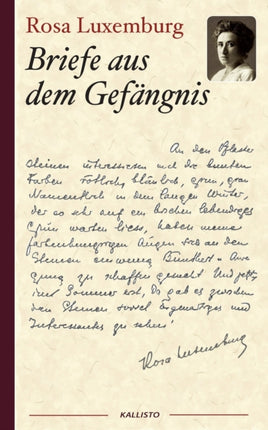 Rosa Luxemburg
Briefe aus
dem Gefängnis
An den Pflaster
steinen interessieren mich die bunten
Farben: rötlich, bläulich, grün, grau
Namentlich in dem langen Winter,
der so sehr auf ein bischen lebendiges
Grün warten liess, haben meine
farbenhungrigen Augen sich an den
Steinen ein wenig Buntheit u. Anre
gung zu schaffen gesucht. Und jetzt,
im Sommer erst, da gab es zwischen
den Steinen soviel Eigenartiges und
Interessantes zu sehen!
Rosa Luxemburg
KALLISTO